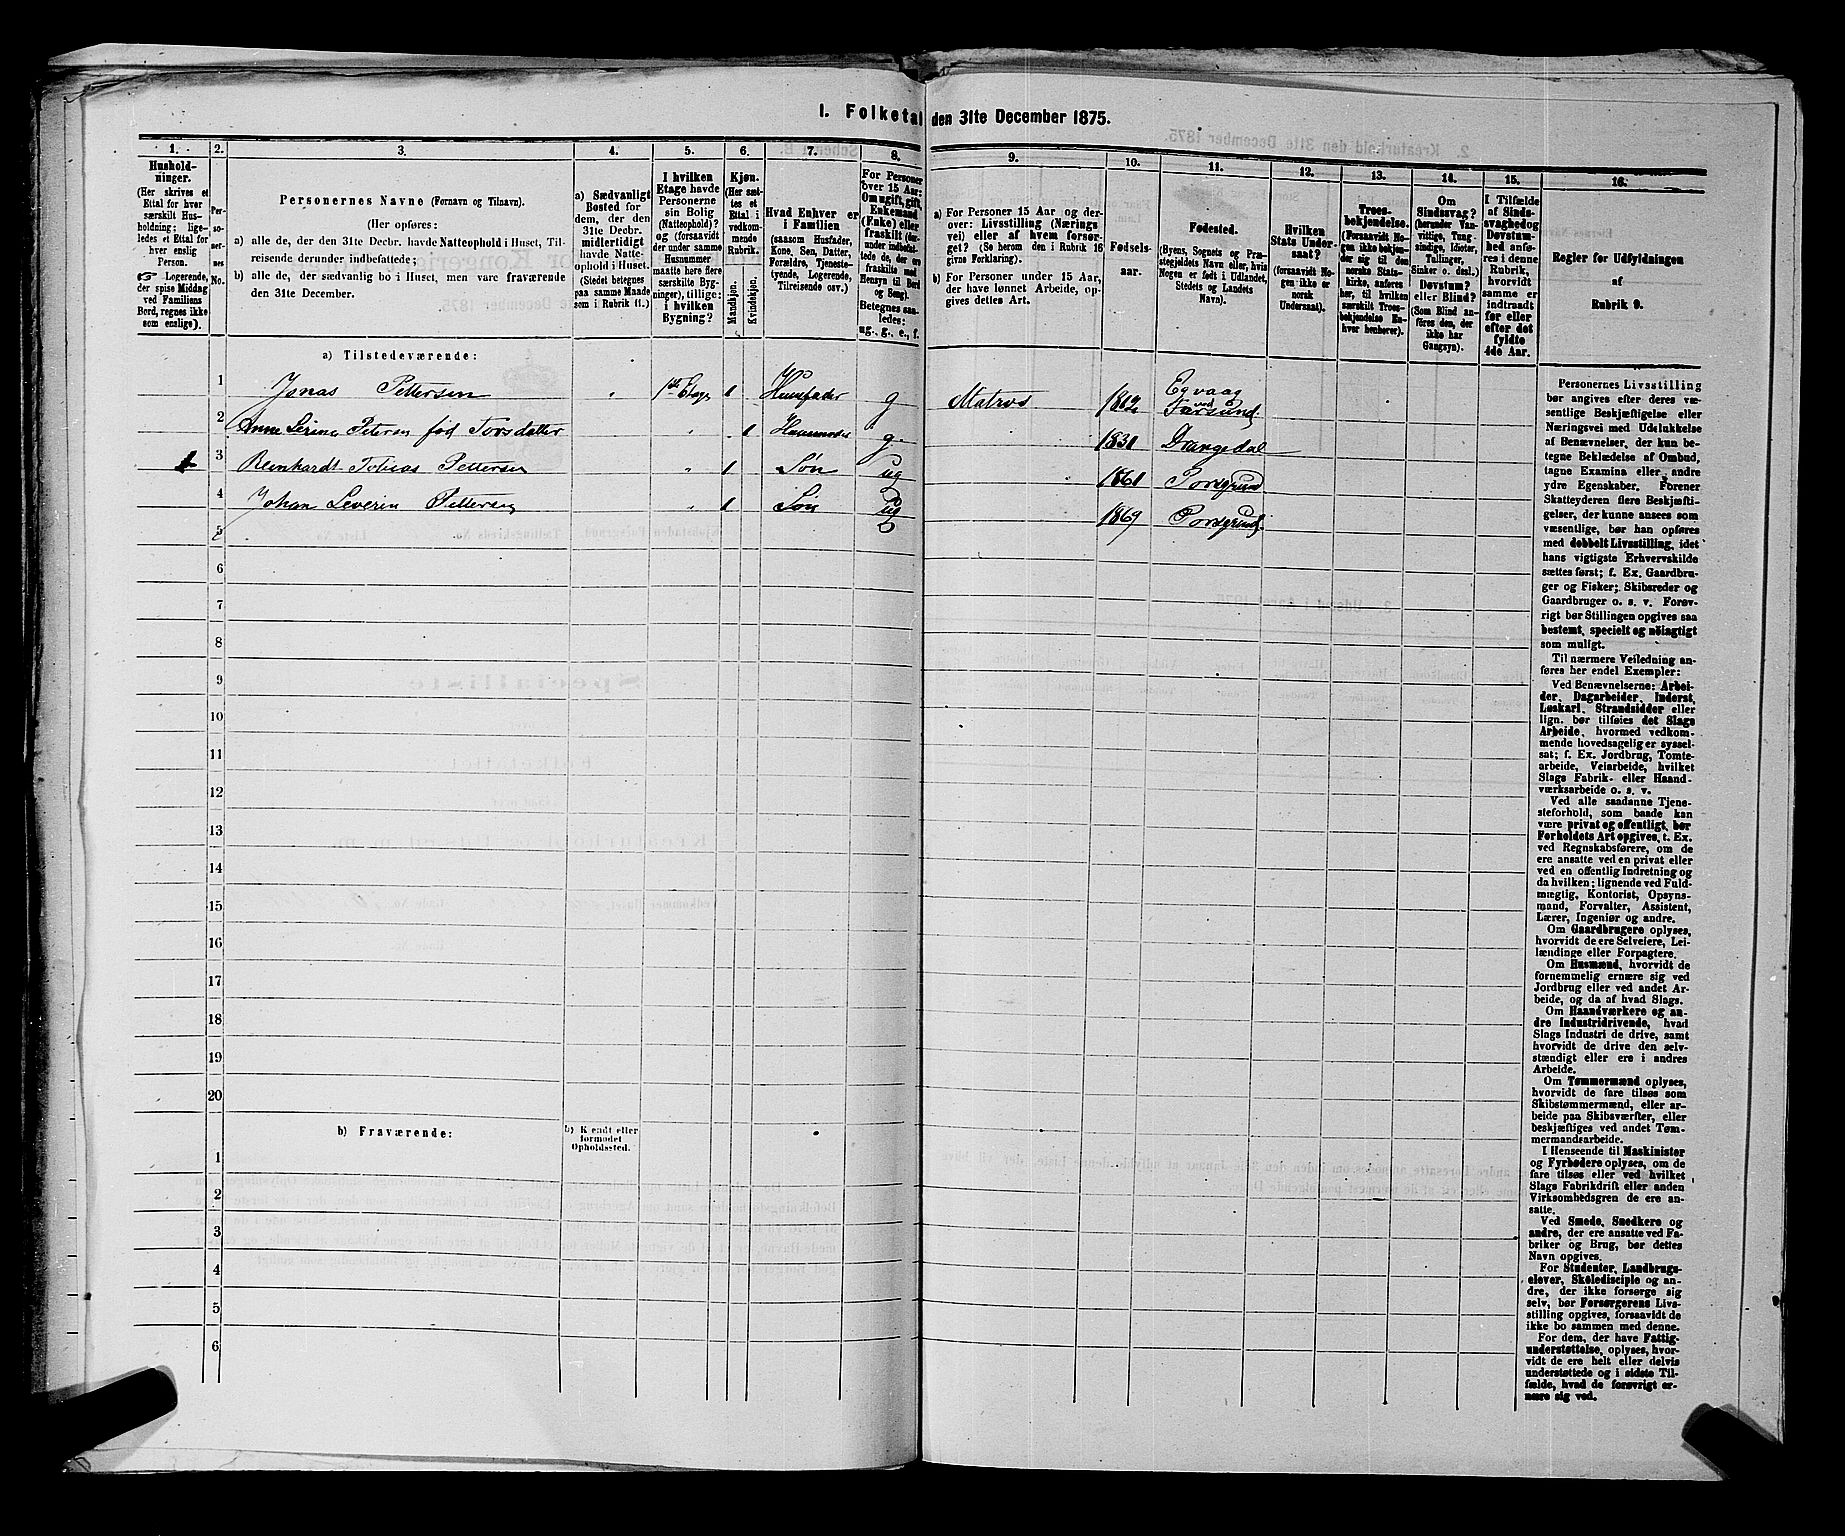 I. Folketal den 31te December 1875.
1. 2. 3. 4. 5. 6. 7. 8. 9. 10. 11. 12. 13. 14. 15. 16.
Hushold-
ninger.
(Her skrives et
Ettal for hver
særskilt Hus-
holdning; lige-
ledes et Ettal for
hver enslig
Person.
☞ Logerende,
der spise Middag
ved Familiens
Bord, regnes ikke
som enslige).
Per-
so-
ner-
nes
No.
Personernes Navne (Fornavn og Tilnavn).
(Her opføres:
a) alle de, der den 31te Decbr. havde Natteophold i Huset, Til-
reisende derunder indbefattede;
b) alle de, der sædvanlig bo i Huset, men vare fraværende
den 31te December.
a) Sædvanligt
Bosted for
dem, der den
31te Decbr.
midlertidigt
havde Natte-
ophold i Huset.
(Stedet betegnes
paa samme Maade
som i Rubrik 11.)
I hvilken
Etage havde
Personerne
sin Bolig
(Natteophold)?
og (forsaavidt
der under samme
Husnummer
maatte høre flere
særskilte Byg-
ninger), tillige:
i hvilken
Bygning?
Kjøn.
(Her sæt-
tes et
Ettal i
vedkom-
mende
Rubrik.)
Mandkjøn.
Kvindekjøn.
Hvad Enhver er
i Familien
(saasom Husfader,
Kone, Søn, Datter,
Forældre, Tjeneste-
tyende, Logerende,
Tilreisende osv.)
For Personer
over 15 Aar:
Om ugift, gift,
Enkemand
(Enke) eller
fraskilt (der-
under indbefat-
tede de, der ere
fraskilte med
Hensyn til Bord
og Seng).
Betegnes saa-
ledes:
ug., g., e., f.
a) For Personer 15 Aar og der-
over: Livsstilling (Nærings
vei) eller af hvem forsør-
get? (Se herom den i Rubrik 16
givne Forklaring).
b) For Personer under 15 Aar,
der have lønnet Arbeide, op-
gives dettes Art.
Fødsels-
aar.
Fødested.
(Byens, Sognets og Præ-
stegjeldets Navn eller, hvis
Nogen er født i Udlandet,
Stedets og Landets
Navn).
Hvilken
Stats Under-
saat?
(forsaavidt No-
gen ikke er
norsk
Undersaat).
Troes-
bekjendelse.
(Forsaavidt No-
gen ikke bekjen-
der sig til den
norske Stats-
kirke, anføres
her, til hvilken
særskilt Troes-
bekjendelse En-
hver henhører).
Om
Sindssvag?
(herunder Van-
vittige, Tung-
sindige, Idioter,
Tullinger,
Sinker o. desl.)
Døvstum?
eller Blind?
(Som Blind an-
føres den, der
ikke har
Gangsyn).
I Tilfælde
af Sinds-
svaghed og
Døvstum-
hed anfø-
res i denne
Rubrik,
hvorvidt
samme er
indtraadt
før eller
efter det
fyldte
4de Aar.
Regler for Udfyldningen
af
Rubrik 9.
a) Tilstedeværende:
1 Jonas Pettersen " 1ste Etage 1 Huusfader g Matros Egvaag ved Farsund
2 Anne Serine Petersen fød Torsdatter " 1 Huusmoder g 1831 Drangedal
1 3 Reinhardt Tobias Pettersen " 1 Søn ug 1861 Porsgrund
4 Johan Severin Pettersen " 1 Søn ug 1869 Porsgrund
5
6
7
8
9
10
11
12
13
14
15
16
17
18
19
20
b) Fraværende:
b) Kjendt eller
formodet
Opholdssted.
1
2
3
4
5
6
Personernes Livsstilling
bør angives efter deres væ-
sentlige Beskjæftigelse eller
Næringsvei med Udelukkelse
af Benævnelser, der kun be-
tegne Beklædelse af Ombud,
tagne Examina eller andre
ydre Egenskaber. Forener
Skatteyderen flere Beskjæfti-
gelser, der kunne ansees som
væsentlige, bør han opføres
med dobbelt Livsstilling, idet
hans vigtigste Erhvervskilde
sættes først; f. Ex. Gaardbru-
ger og Fisker; Skibsreder og
Gaardbruger o. s. v. Forøv-
rigt bør Stillingen opgives saa
bestemt, specielt og nöiagtigt
som muligt.
Til nærmere Veiledning an-
føres her endel Exempler:
Ved Benævnelserne: Arbei-
der, Dagarbeider, Inderst,
Løskarl, Strandsidder eller
lign. bør tilføies det Slags
Arbeide, hvormed vedkom-
mende hovedsagelig er syssel-
sat; f. Ex. Jordbrug, Tomte-
arbeide, Veiarbeide, hvilket
Slags Fabrik- eller Haand-
værksarbeide o. s. v.
Ved alle saadanne Tjene-
steforhold, som baade kan
være privat og offentligt, bør
Forholdets Art opgives, t. Ex.
ved Regnskabsførere, om de
ere ansatte ved en privat eller
ved en offentlig Indretning og
da hvilken; lignende ved Fuld-
mægtig, Kontorist, Opsyns-
mand, Forvalter, Assistent,
Lærer, Ingeniør og andre.
Om Gaardbrugere oplyses,
hvorvidt de ere Selveiere, Lei-
lændinge eller Forpagtere.
Om Husmænd, hvorvidt de
fornemmelig ernære sig ved
Jordbrug eller ved andet Ar-
beide, og da af hvad Slags.
Om Haandværkere og an-
dre Industridrivende, hvad
Slags Industri de drive, samt
hvorvidt de drive den selv-
stændigt eller ere i andres
Arbeide.
Om Tømmermænd oplyses,
hvorvidt de fare tilsøs som
Skibstømmermænd, eller ar-
beide paa Skibsværfter, eller
beskjæftiges ved andet Tøm-
mermandsarbeide.
I Henseende til Maskinister
og Fyrbødere oplyses, om de
fare tilsøs eller ved hvilket
Slags Fabrikdrift eller anden
Virksomhedsgren de ere an-
satte.
Ved Smede, Snedkere og
andre, der ere ansatte ved Fa-
briker og Brug, bør dettes
Navn opgives.
For Studenter, Landbrugs-
elever, Skoledisciple og an-
dre, der ikke forsørge sig
selv, bør Forsørgerens Livs-
stilling opgives, forsaavidt de
ikke bo sammen med denne.
For dem, der have Fattig-
understøttelse, oplyses, hvor-
vidt de ere helt eller delvis
understøttede og i sidste Til-
fælde, hvad de forøvrigt er-
nære sig ved.